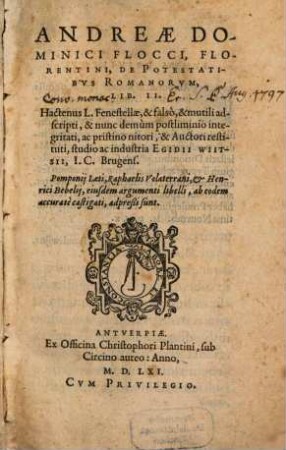 ANDREÆ DO-
MINICI FLOCCI, FLO-
RENTINI, DE POTESTATI-
BVS ROMANORVM,
LIB. II.
Hactenus L. Fenestellæ, & falsò, & mutili ad-
scripti, & nunc demùm postliminio inte-
gritati, ac pristino nitori, & Auctori resti-
tuti, studio ac industria EGIDII WIIT-
SII, I. C. Brugens.
Pomponij Læti, Raphaelis Volaterrani, & Hen-
rici Bebelij, eiusdem argumenti libelli, ab eodem
accuratè castigati, adpressi sunt.
CONSTANTIA
ANTVERPIÆ.
Ex Officina Christophori Plantini, sub
Circino aureo: Anno,
M. D. LXI.
CVM PRIVILEGIO.